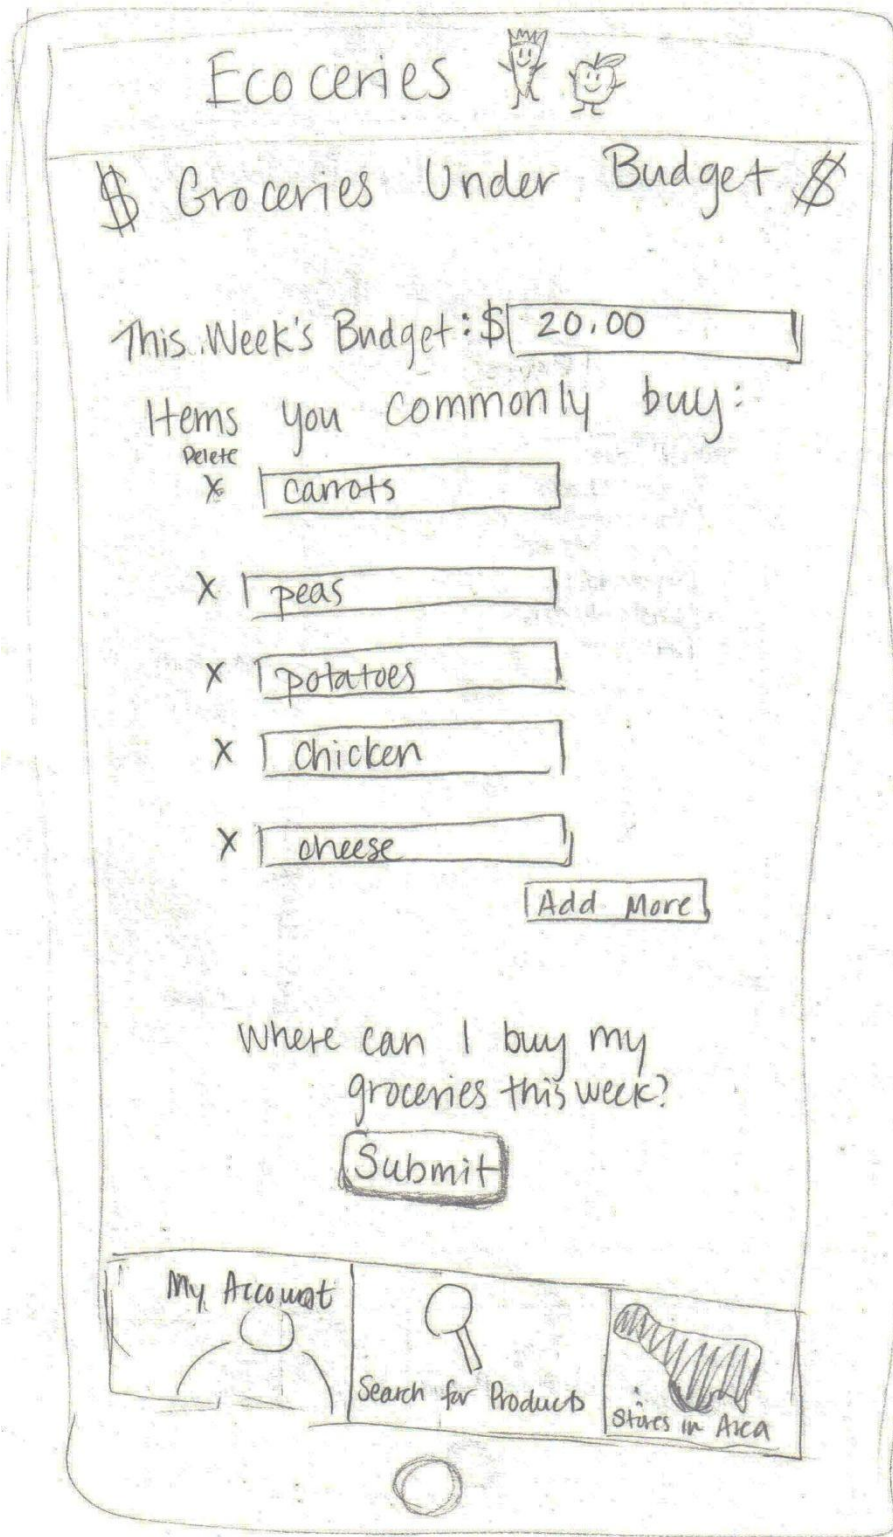 Ecoceries
$ Groceries Under Budget $
This Week's Budget: $ 20.00
Items you commonly buy:
Delete
X carrots
X peas
X potatoes
X Chicken
X cheese
Add More
Where can I buy my
groceries this week?
Submit
My Account
Search for Products
Stores in Area